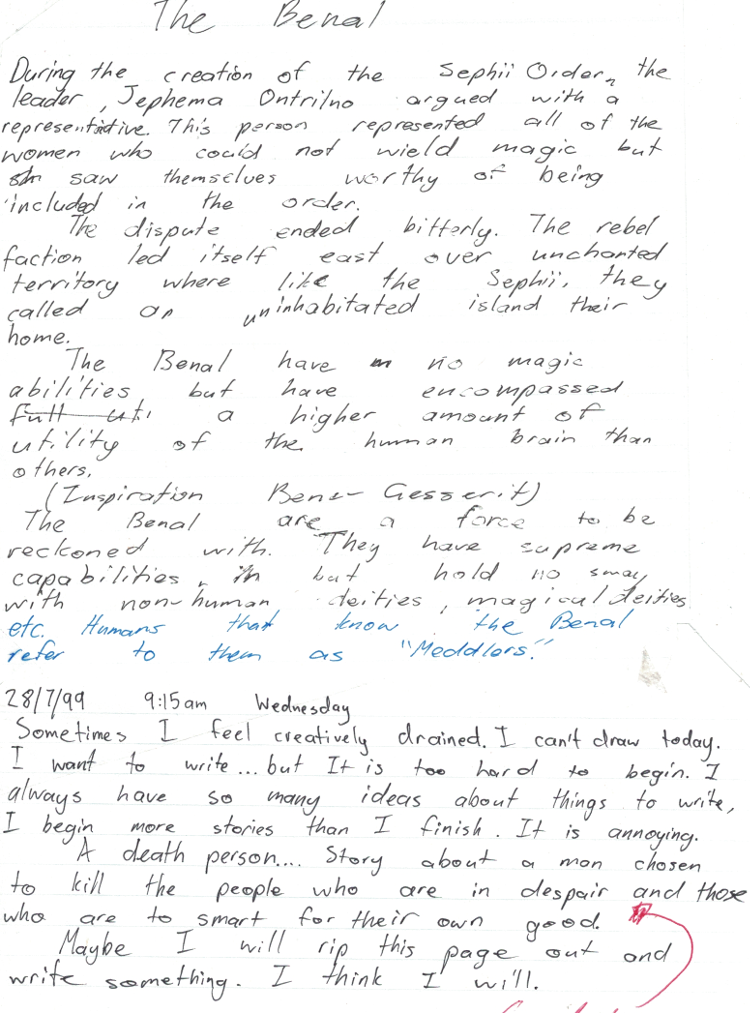 The Benal
During the creation of the Sephii Order, the
leader, Jephema Ontrilno argued with a
representative. This person represented all of the
women who could not wield magic but
saw themselves worthy of being
included in the order.
The dispute ended bitterly. The rebel
faction led itself east over unchanted
territory where like the Sephii, they
called an uninhabitated island their
home.
The Benal have no magic
abilities but have encompassed
a higher amount of
utility of the human brain than
others.
(Inspiration Bene-Gesserit)
The Benal are a force to be
reckoned with. They have supreme
capabilities, but hold no sway
with non-human deities, magical deities
etc. Humans that know the Benal
refer to them as "Meddlors."
28/7/99 9:15am Wednesday
Sometimes I feel creatively drained. I can't draw today.
I want to write... but It is too hard to begin. I
always have so many ideas about things to write,
I begin more stories than I finish. It is annoying.
A death person.... Story about a man chosen
to kill the people who are in despair and those
who are to smart for their own good.
Maybe I will rip this page out and
write something. I think I will.